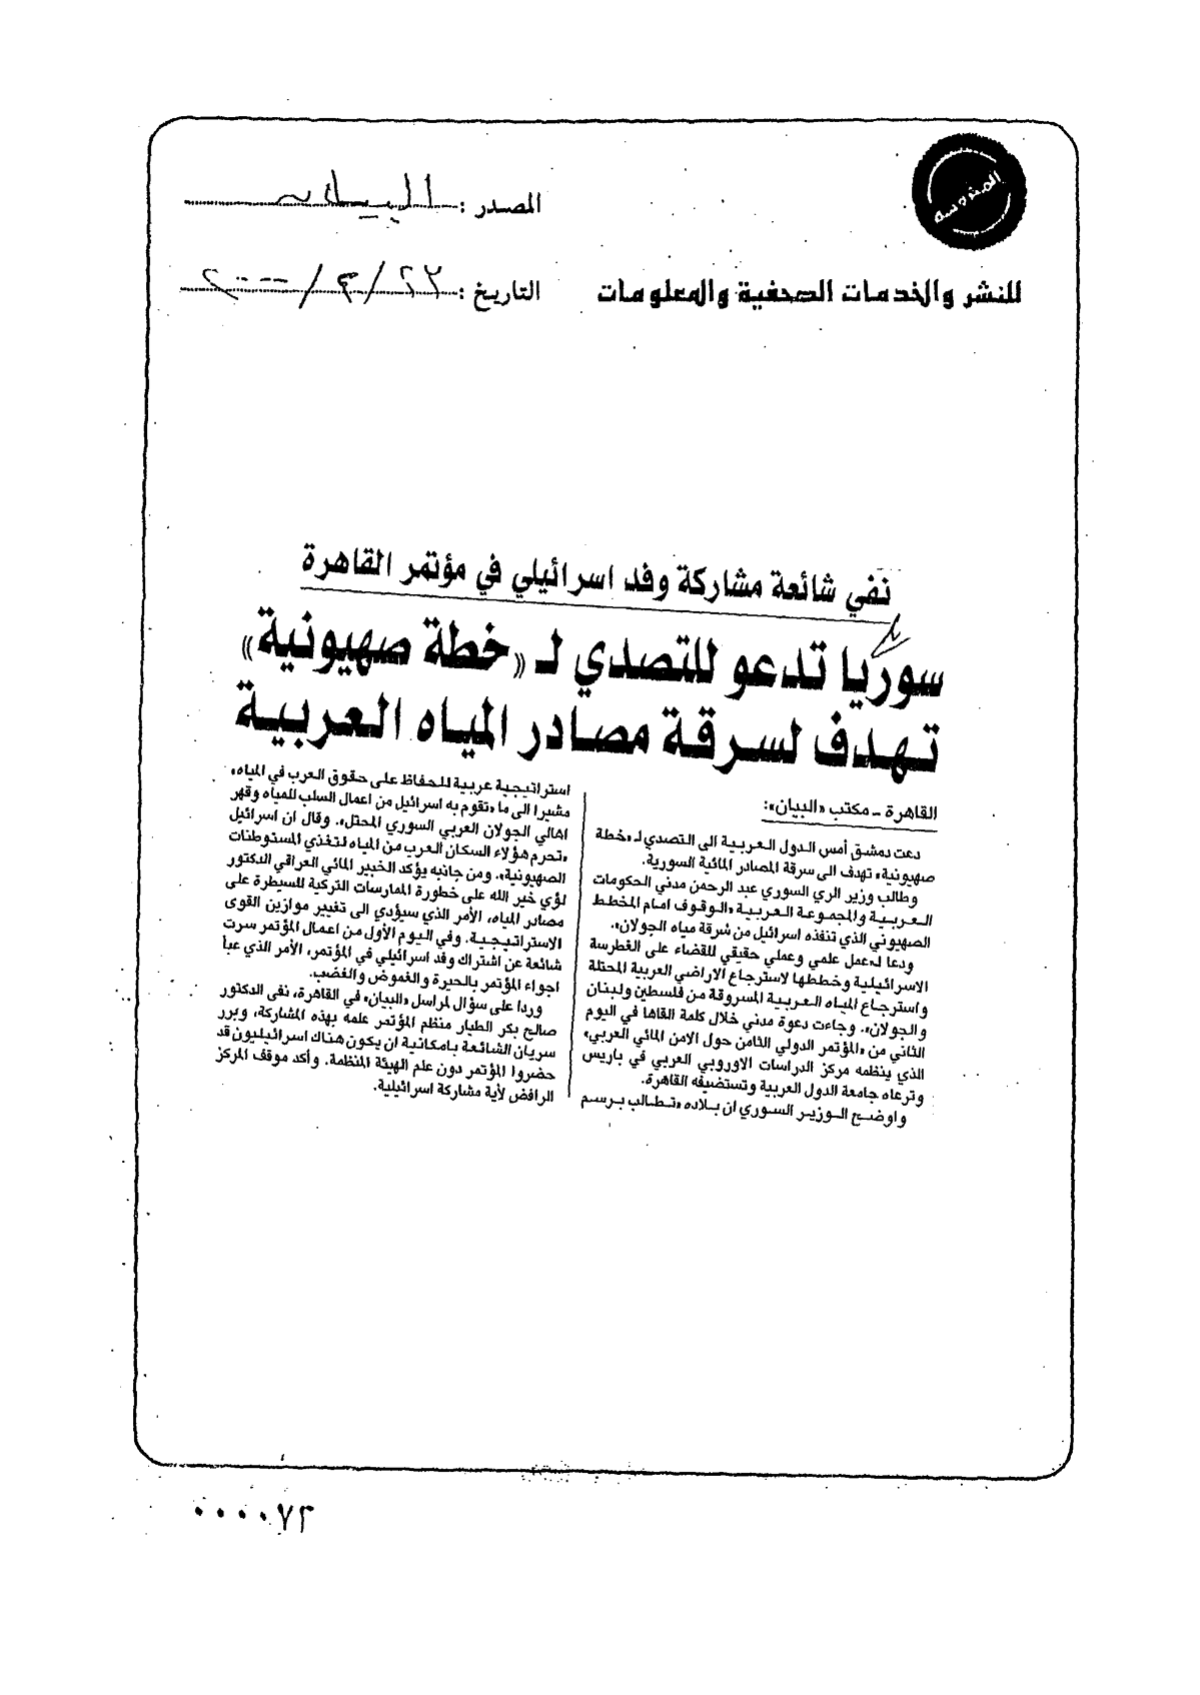 المحروسة
المصدر : البيان
للنشر والخدمات الصحفية والمعلومات
التاريخ : ٢٢ / ٣ / ٢٠٠٠
نفي شائعة مشاركة وفد اسرائيلي في مؤتمر القاهرة
سوريا تدعو للتصدي لـ «خطة صهيونية»
تهدف لسرقة مصادر المياه العربية
القاهرة ـ مكتب «البيان»:
دعت دمشق أمس الدول العربية الى التصدي لـ «خطة
صهيونية» تهدف الى سرقة المصادر المائية السورية.
وطالب وزير الري السوري عبد الرحمن مدني الحكومات
العربية والمجموعة العربية «الوقوف امام المخطط
الصهيوني الذي تنفذه اسرائيل من شرقة مياه الجولان».
ودعا لـ«عمل علمي وعملي حقيقي للقضاء على الغطرسة
الاسرائيلية وخططها لاسترجاع الاراضي العربية المحتلة
واسترجاع المياه العربية المسروقة من فلسطين ولبنان
والجولان». وجاءت دعوة مدني خلال كلمة القاها في اليوم
الثاني من «المؤتمر الدولي الثامن حول الامن المائي العربي»
الذي ينظمه مركز الدراسات الاوروبي العربي في باريس
وترعاه جامعة الدول العربية وتستضيفه القاهرة.
واوضح الوزير السوري ان بلاده «تطالب برسم
استراتيجية عربية للحفاظ على حقوق العرب في المياه»
مشيرا الى ما «تقوم به اسرائيل من اعمال السلب للمياه وقهر
اهالي الجولان العربي السوري المحتل». وقال ان اسرائيل
«تحرم هؤلاء السكان العرب من المياه لتغذي المستوطنات
الصهيونية». ومن جانبه يؤكد الخبير المائي العراقي الدكتور
لؤي خير الله على خطورة الممارسات التركية للسيطرة على
مصادر المياه، الأمر الذي سيؤدي الى تغيير موازين القوى
الاستراتيجية. وفي اليوم الأول من اعمال المؤتمر سرت
شائعة عن اشتراك وفد اسرائيلي في المؤتمر، الأمر الذي عبأ
اجواء المؤتمر بالحيرة والغموض والغضب.
وردا على سؤال لمراسل «البيان» في القاهرة، نفى الدكتور
صالح بكر الطيار منظم المؤتمر علمه بهذه المشاركة، وبرر
سريان الشائعة بامكانية ان يكون هناك اسرائيليون قد
حضروا المؤتمر دون علم الهيئة المنظمة. وأكد موقف المركز
الرافض لأية مشاركة اسرائيلية.
٠٠٠٠٧٢